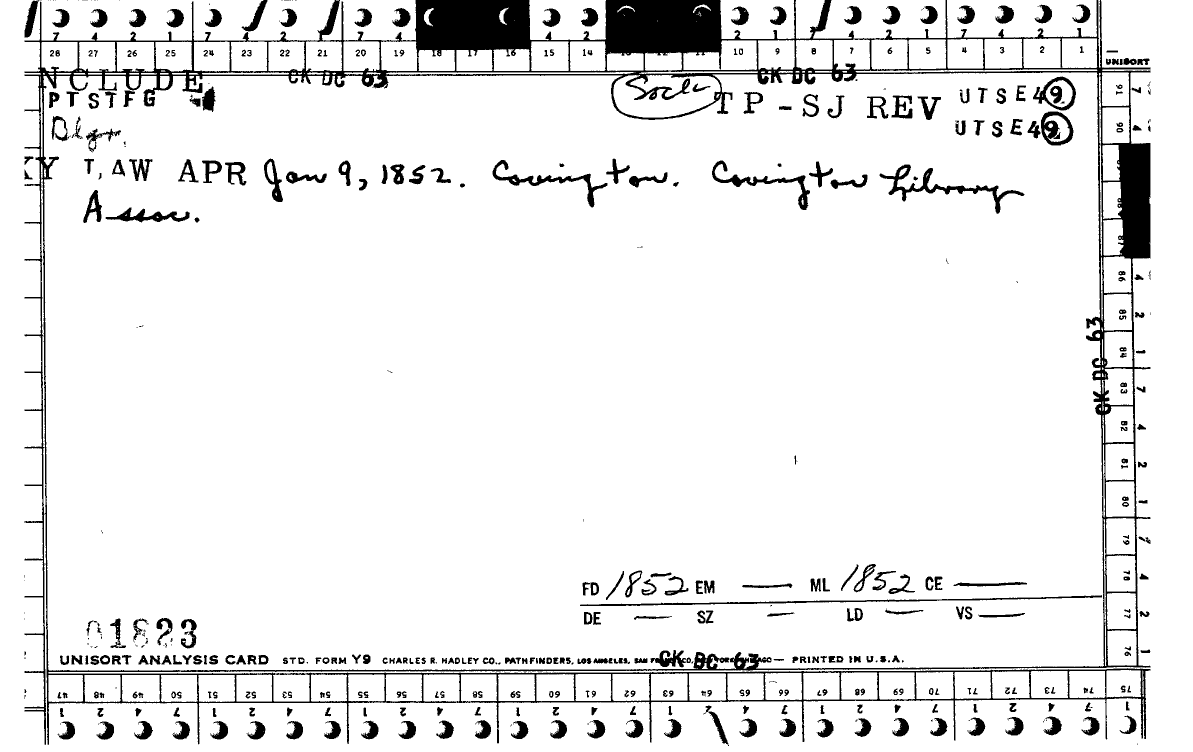 7 4 2 1 7 4 2 1 7 4 2 1 2 1 7 4 2 1 7 4 2 1
28 27 26 25 24 23 22 21 20 19 18 17 16 15 14 10 9 8 7 6 5 4 3 2 1
UNISORT
NCLUDE CK DC 63 CK DC 63
PTSTFG TP-SJ REV UTSE49
UTSE49
KY LAW APR Jan 9, 1852. Covington. Covington Library
Assoc.
91 90 86 85 84 83 82 81 80 79 78 77 76
CK DC 63
FD 1852 EM — ML 1852 CE —
DE — SZ — LD — VS —
01823
UNISORT ANALYSIS CARD STD. FORM Y9 CHARLES R. HADLEY CO., PATHFINDERS, LOS ANGELES, — PRINTED IN U.S.A.
CK DC 63
47 48 49 50 51 52 53 54 55 56 57 58 59 60 61 62 63 64 65 66 67 68 69 70 71 72 73 74 75
1 2 4 7 1 2 4 7 1 2 4 7 1 2 4 7 1 2 4 7 1 2 4 7 1 2 4 7 1